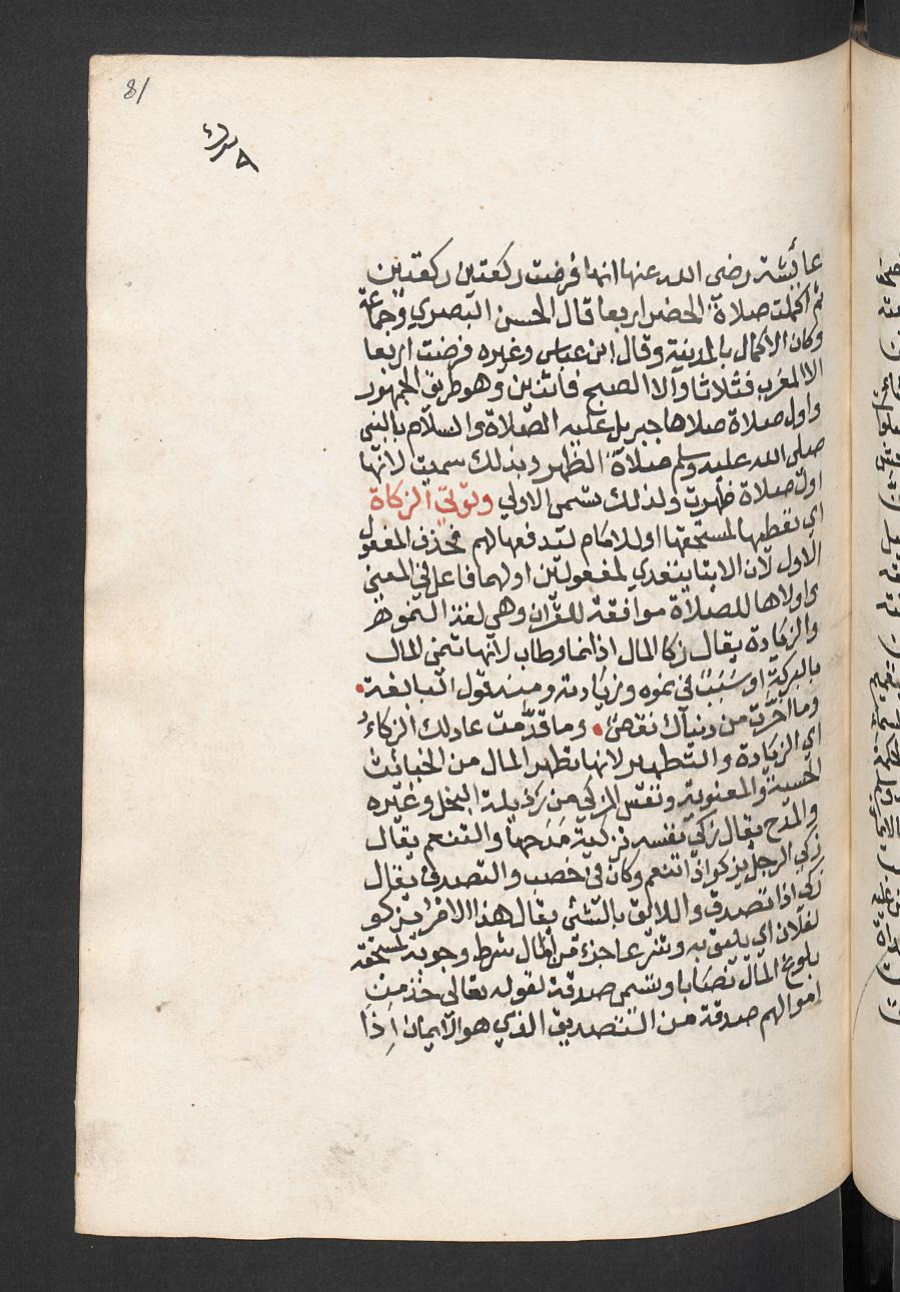 81
عائشة رضى الله عنها انها فرضت ركعتين ركعتين
ثم اكملت صلاة الحضر اربعا قال الحسن البصري وجماعة
وكان الاكمال بالمدينة وقال ابن عباس وغيره فرضت اربعا
الا المغرب فثلاثا والا الصبح فاثنين وهو طريق الجمهور
واول صلاة صلاها جبريل عليه الصلاة والسلام بالنبي
صلى الله عليه وسلم صلاة الظهر وبذلك سميت لانها
اول صلاة ظهرت ولذلك تسمى الاولي وتؤتي الزكاة
اي تعطيها لمستحقها او للامام ليدفعها لهم فحذف المفعول
الاول لان الايتا يتعدي لمفعولين اولهما فاعل في المعنى
واولاها للصلاة موافقة للقران وهي لغة النمو
والزيادة يقال زكا المال اذا نما وطاب لانها تنمي المال
بالبركة او سبب في نموه وزيادته ومنه قول النابغة
وما اخرت من دنياك نقص وما قدمت عاد لك الزكاء
اي الزيادة والتطهير لانها تطهر المال من الخبائث
الحسية والمعنوية ونفس المزكي من رذيلة البخل وغيره
والمدح يقال زكى نفسه تزكية مدحها والتنعم يقال
زكي الرجل يزكو اذا تنعم وكان في خصب والتصدق يقال
زكي اذا تصدق واللائق بالشئ يقال هذا الامر لا يزكو
لفلان اي يليق به وشرعا جزء من المال شرط وجوبه لمستحقه
بلوغ المال نصابا وتسمى صدقة لقوله تعالى خذ من
اموالهم صدقة من التصديق الذي هو الايمان اذا